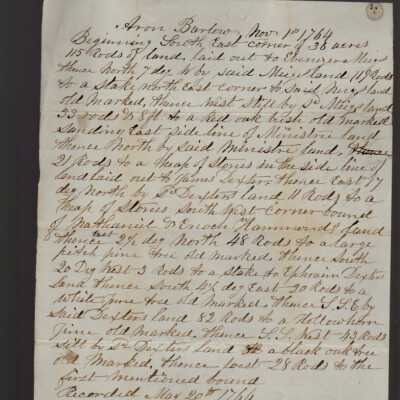 Aron Barlow, Nov 1st 1764
Beginning South East corner of 38 acres
115 Rods of land, laid out to Ebenezer Meigs
thence North 7 deg W by said Meigs land 119 Rods
to a Stake North East corner to said Meigs land
old Marked, thence West by Sd Meigs land
33 rods & 8 ft to a red oak bush old marked
Standing East side line of Ministre land
thence North by said Ministre land, thence
21 Rods to a heap of Stones in the side line of
land laid out to James Dexter, thence East 17
deg North by Sd Dexters land 11 Rods to a
heap of Stones South West corner bound
of Nathaniel & Enoch Hammonds land
thence East 2½ deg North 48 Rods to a large
pitch pine tree old marked, thence South
20 Deg West 3 Rods to a stake to Ephraim Dexters
land thence South 4½ deg East 90 Rods to a
white pine tree old marked, thence S.S.E. by
said Dexters land 82 Rods to a
pine old marked, thence S.S. West 43 Rods
still by Sd Dexters land to a black oak tree
old Marked, thence West 28 Rods to the
first mentioned bound
Recorded May 20th 1764